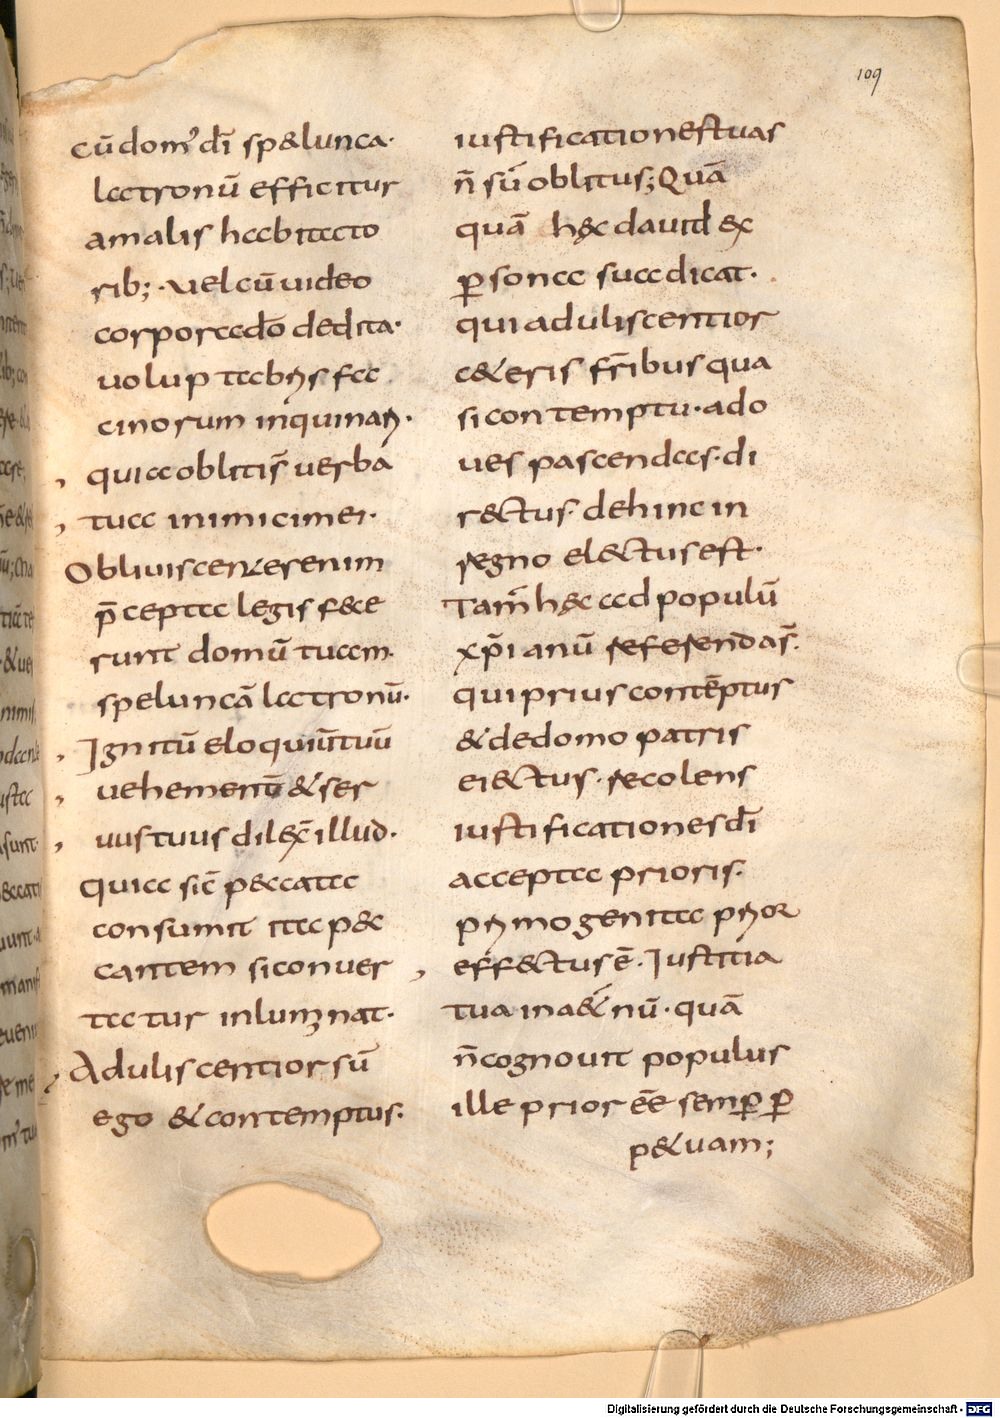 109
cū dom' dī sp&lunca·
latronū efficitur
amalis habitato
rib; · uel cū uideo
corpora do dedita·
uoluptatibus fac
cinorum inquinari·
quia obliti s̄ uerba
tua inimici mei·
Obliuiscentes enim
p̄cepta legis f&ce
runt domū tuam·
speluncā latronū·
Ignitū eloquiū tuū
uehementū & ser
uus tuus dilex̄ illud·
quia sic̄ p&ccata
consumit ita p&c
cantem si conuer
tatur inluminat·
Aduliscentior sū
ego & contemptus·
iustificationes tuas
n̄ sū oblitus; Quā
quā h&c dauid ex
ꝑsona sua dicat·
qui aduliscentior
c&eris fr̄ibus qua
si contemptu· ado
ues pascendas· di
r&ctus· dehinc in
regno el&ctus est·
Tam̄ h&c ad populū
xp̄ianū referendas̄·
qui prius contēptus
& de domo patris
ei&ctus· recolens
iustificationes dī
accepta prioris·
primogenita prior
eff&ctus ē· Iustitia
tua in a& nū· quā
n̄ cognouit populus
ille prior ēē semꝑ ꝑ
p&uam;
Digitalisierung gefördert durch die Deutsche Forschungsgemeinschaft - DFG